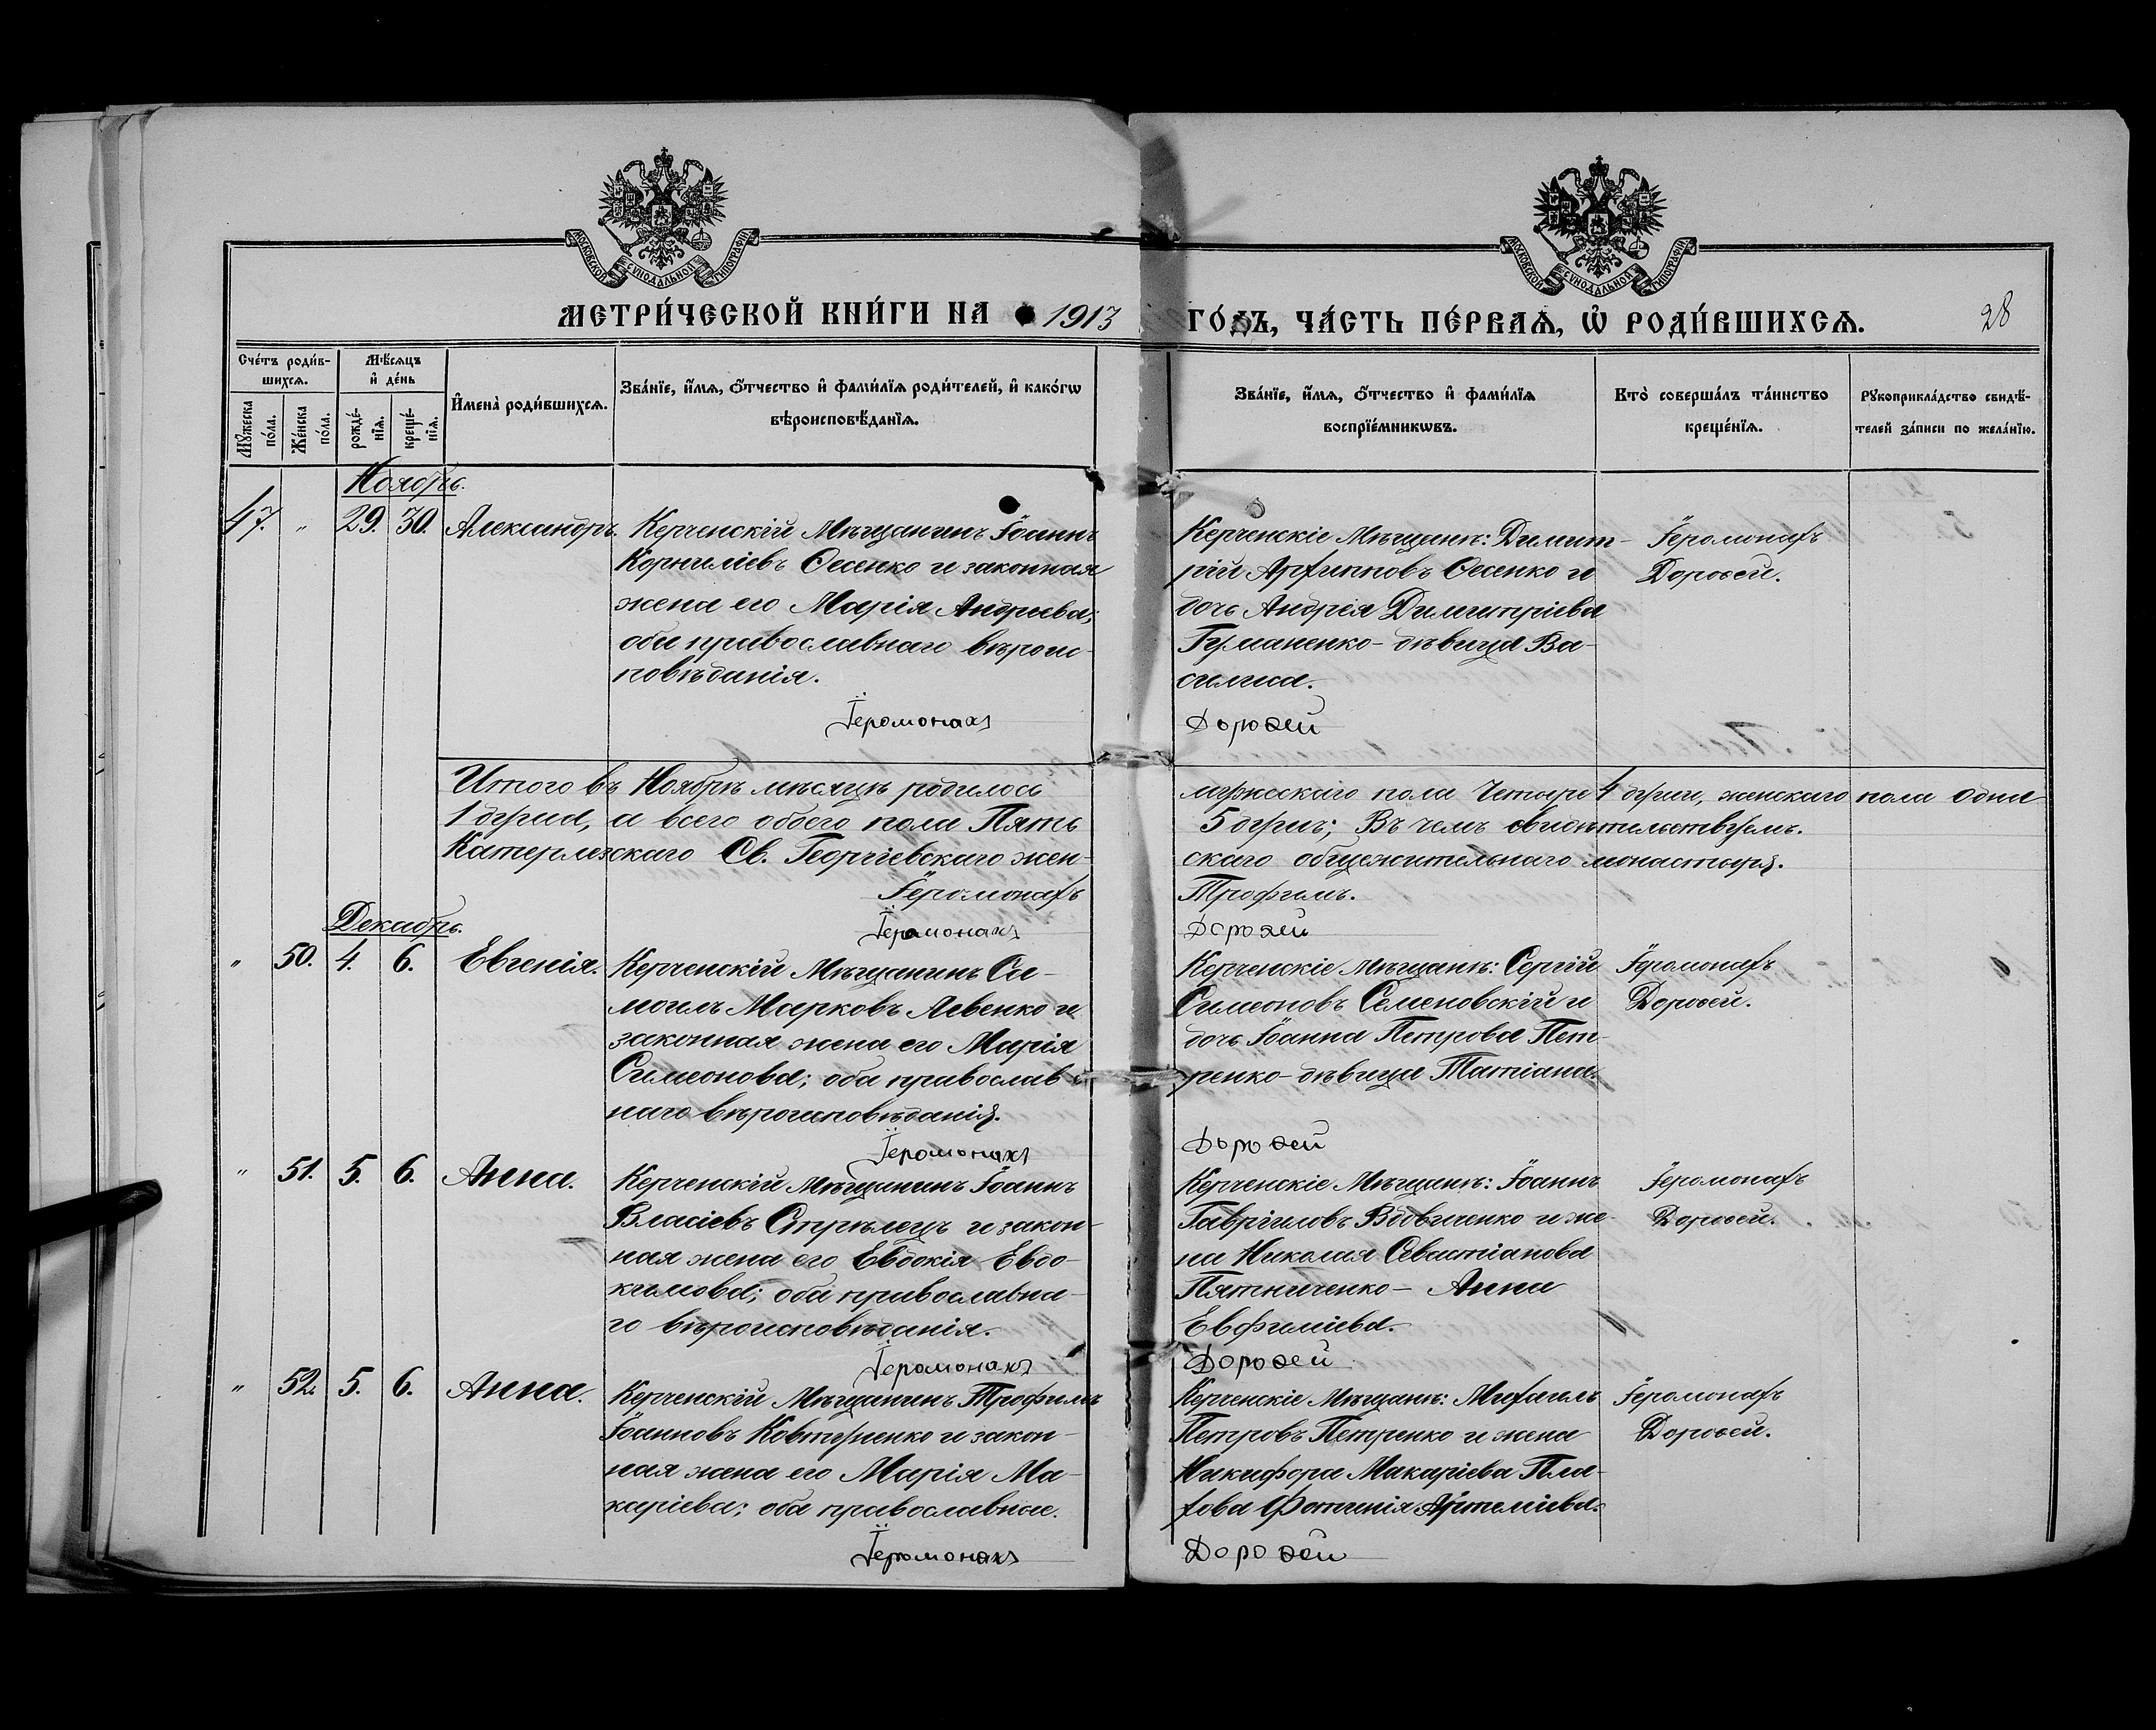 МОСКОВСКОЙ СѴНОДАЛЬНОЙ ТИПОГРАФІИ
МОСКОВСКОЙ СѴНОДАЛЬНОЙ ТИПОГРАФІИ
МЕТРИ́ЧЕСКОЙ КНИ́ГИ НА 1913 ГО́ДЪ, ЧА́СТЬ ПЕ́РВАѦ, Ѡ҆ РОДИ́ВШИХСѦ.
28
Сче́тъ роди́в-
шихсѧ.
Мѣ́сѧцъ
и҆ де́нь
Мꙋ́жеска
по́ла.
Же́нска
по́ла.
рожде́-
нїѧ.
креще́-
нїѧ.
И҆мена̀ роди́вшихсѧ.
Зва́нїе, и҆́мѧ, ѻ҆́тчество и҆ фами́лїѧ роди́телей, и҆ како́гѡ
вѣроисповѣ́данїѧ.
Зва́нїе, и҆́мѧ, ѻ҆́тчество и҆ фами́лїѧ
воспрїе́мникѡвъ.
Кто̀ соверша́лъ та́инство
креще́нїѧ.
Рꙋкоприкла́дство свидѣ́-
телей за́писи по жела́нїю.
Ноябрь.
47. " 29. 30. Александръ.
Керченскій Мѣщанинъ Іоаннъ
Корниліевъ Осенко и законная
жена его Марія Андреева;
оба православнаго вѣроис-
повѣданія.
Керченскіе Мѣщане: Димит-
рій Архипповъ Осенко и
дочь Андрея Димитріева
Гуманенко - дѣвица Ва-
силиса.
Іеромонахъ
Дороѳей.
Іеромонахъ Дороѳей
Итого въ Ноябрѣ мѣсяцѣ родилось мужескаго пола Четыре 4 души, женскаго пола одна
1 душа, а всего обоего пола Пять 5 душъ; Въ чемъ свидѣтельствуемъ.
Катерлезскаго Св. Георгіевскаго жен- скаго общежительнаго монастыря.
Іеромонахъ Трофимъ.
Іеромонахъ Дороѳей
Декабрь.
" 50. 4. 6. Евгенія.
Керченскій Мѣщанинъ Са-
моилъ Марковъ Левенко и
законная жена его Марія
Симеонова; оба православ-
наго вѣроисповѣданія.
Керченскіе мѣщане: Сергій
Симеоновъ Семеновскій и
дочь Іоанна Петрова Пет-
ренко - дѣвица Татіана.
Іеромонахъ
Дороѳей.
Іеромонахъ Дороѳей
" 51. 5. 6. Анна.
Керченскій Мѣщанинъ Іоаннъ
Власіевъ Стрѣлецъ и закон-
ная жена его Евдокія Евдо-
кимова; оба православна-
го вѣроисповѣданія.
Керченскіе Мѣщане: Іоаннъ
Гавріиловъ Вдовиченко и же-
на Николая Севастіанова
Пятниченко - Анна
Евфиміева.
Іеромонахъ
Дороѳей.
Іеромонахъ Дороѳей
" 52. 5. 6. Анна.
Керченскій Мѣщанинъ Трофимъ
Іоанновъ Ковтуненко и закон-
ная жена его Марія Ма-
каріева; оба православные.
Керченскіе Мѣщане: Михаилъ
Петровъ Петренко и жена
Никифора Макаріева Пла-
хова Фотинія Артеміева.
Іеромонахъ
Дороѳей.
Іеромонахъ Дороѳей